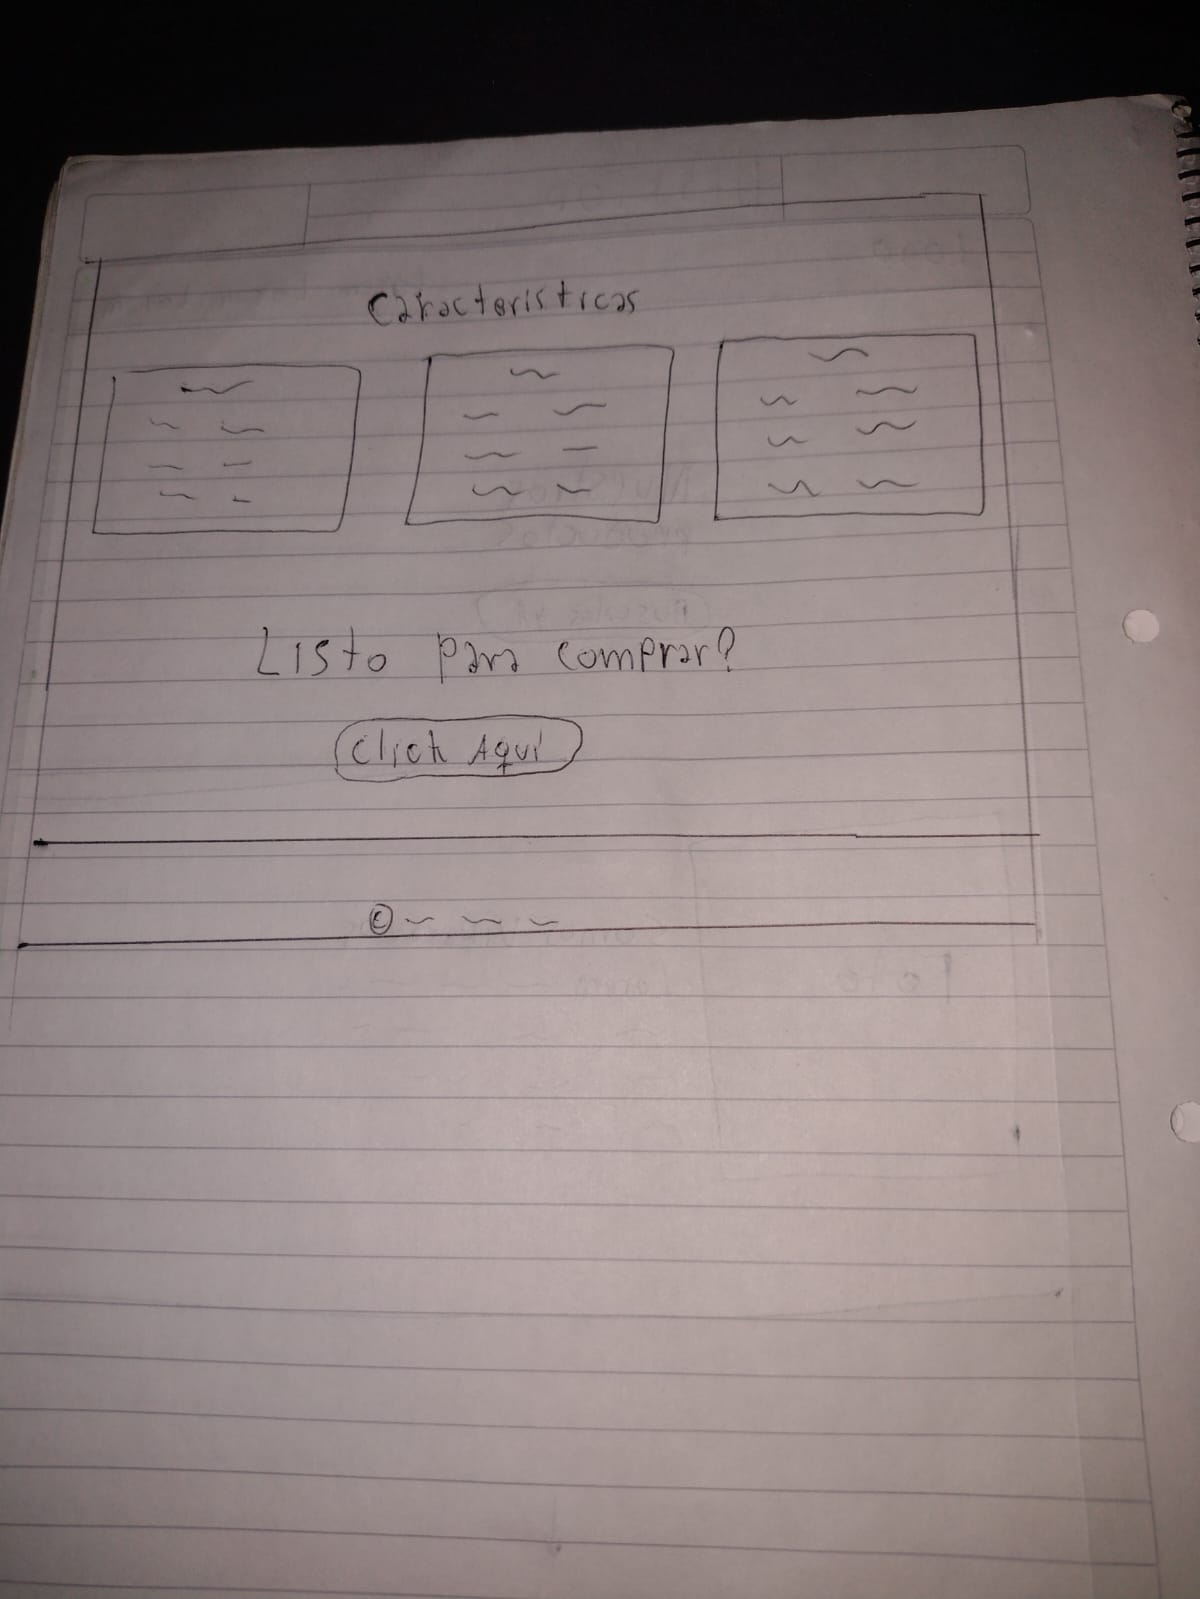 Caracteristicas
Listo para comprar?
Click Aquí
©